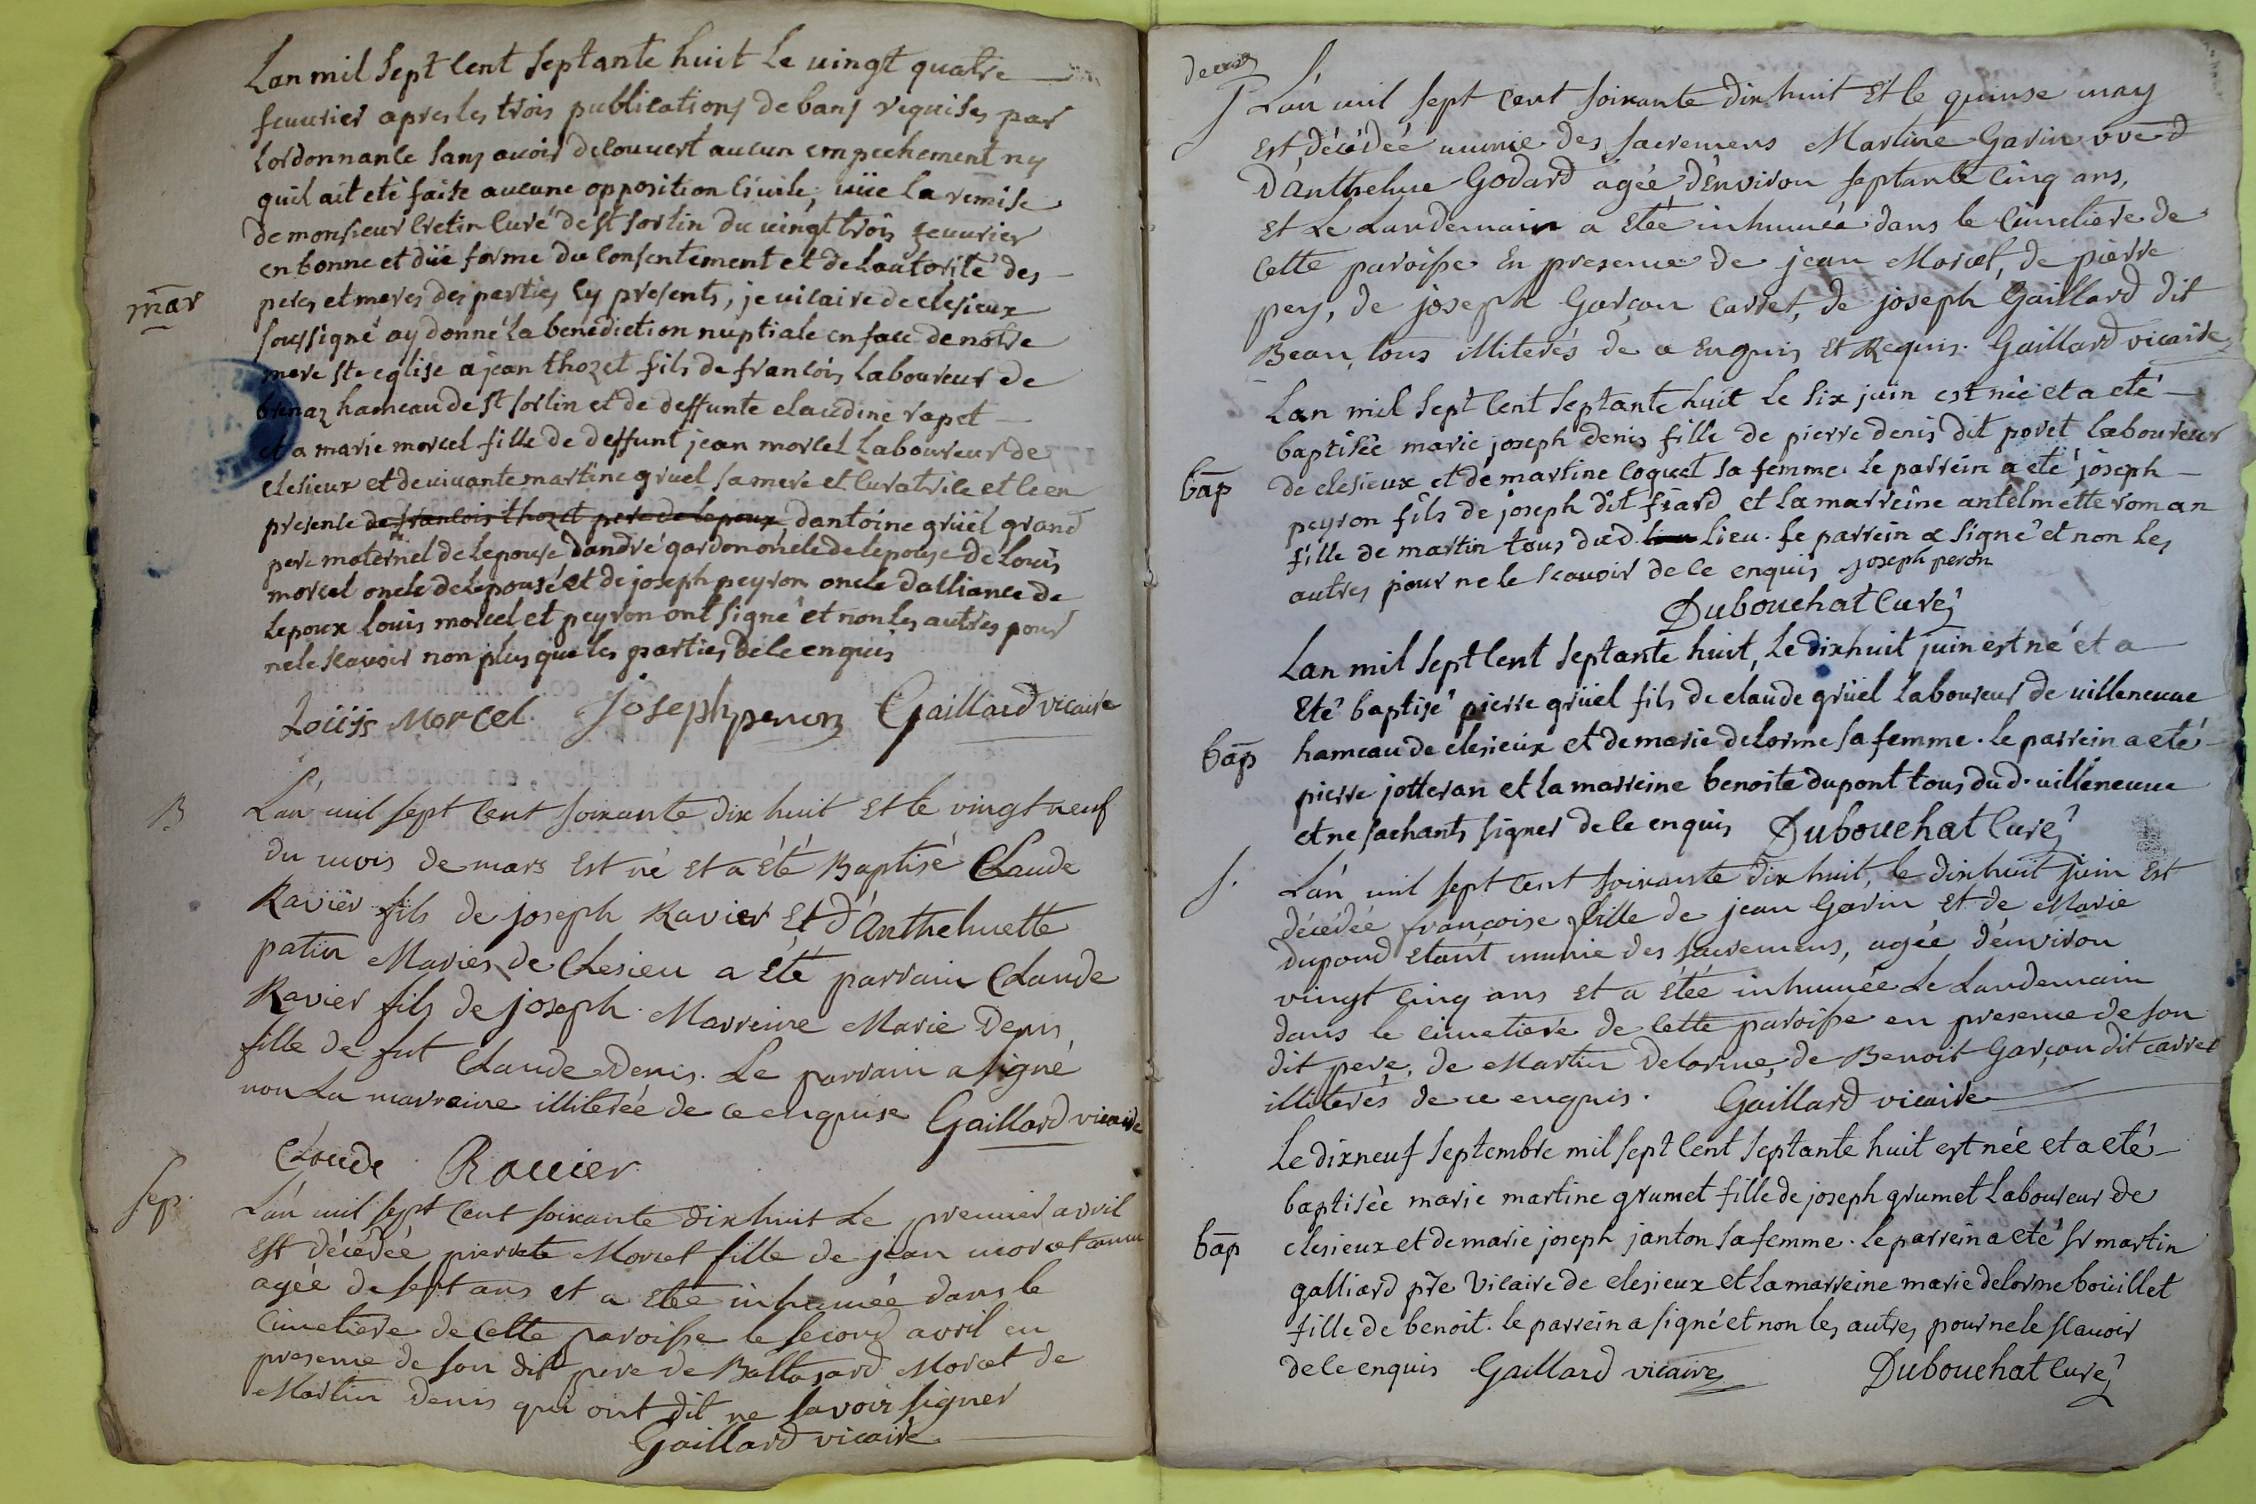 Lan mil sept cent septante huit le vingt quatre
feuurier apres les trois publications de bans requises par
lordonnance sans auoir decouuert aucun empechement ny
quil ait eté faite aucune opposition ciuile, uüe la remise
de monsieur cretin curé de st sorlin du uingt trois feuurier
en bonne et düe forme du consentement et de lautorité des
mar
peres et meres des parties cy presents, je uicaire de clesieux
soussigné ay donné la benediction nuptiale en face de notre
mere ste eglise a jean thozet fils de francois laboureur de
brenaz hameau de st sorlin et de deffunte claudine rapet
et a marie morcel fille de deffunt jean morcel laboureur de
clesieux et de uiuante martine gruel sa mere et curatrice et ce en
presence de francois thozet pere de lepoux dantoine grüel grand
pere maternel de lepouse dandré gardon oncle de lepouse de louis
morcel oncle de lepouse et de joseph peyron oncle dalliance de
lepoux louis morcel et peyron ont signé et non les autres pour
ne le scauoir non plus que les parties de ce enquis
Loüis Morcel Joseph peron Gaillard vicaire
B
L'an mil sept cent soixante dix huit et le vingt neuf
du mois de mars est né et a été Baptisé Claude
Ravier fils de joseph Ravier et d'Anthelmette
patin Mariés de Clesieu a été parrain Claude
Ravier fils de joseph. Marreine Marie Denis
fille de fut Claude Denis. Le parrain a signé
non La marraine illiterée de ce enquise Gaillard vicaire
Claude Rauier
sep.
L'an mil sept cent soixante dix huit Le premier avril
est décédée pierrete Morcel fille de jean morcel
agée de sept ans et a etée inhumée dans le
Cimetiere de Cette paroisse le second avril en
presence de son dit pere de Baltasard Morcel de
Martin Denis qui ont dit ne savoir signer
Gaillard vicaire
S L'an mil sept cent soixante dix huit et le quinse may
est décédée munie des sacremens Martine Garin vve
D'Anthelme Godard agée d'environ septante cinq ans,
et Le Landemain a etée inhumée dans le Cimetiere de
Cette paroisse En presence de jean Morcel, de pierre
pey, de joseph Garçon Carret, de joseph Gaillard dit
Bean, tous illiterés de ce Enquis et Requis. Gaillard vicaire
Lan mil sept cent septante huit le six juin est née et a eté
baptisée marie joseph denis fille de pierre denis dit poret laboureur
bap
de clesieux et de martine coquet sa femme. le parrein a eté joseph
peyron fils de joseph dit fiard et la marreine antelmette roman
fille de martin tous dud lieu. le parrein a signé et non les
autres pour ne le scauoir de ce enquis joseph peron
Dubouchat Curé
Lan mil sept cent septante huit, le dixhuit juin est né et a
eté baptisé pierre grüel fils de claude grüel laboureur de uilleneuue
bap
hameau de clesieux et de marie delorme sa femme. le parrein a eté
pierre jotteran et la marreine benoite dupont tous dud. uilleneuue
et ne sachants signer de ce enquis Dubouchat Curé
S.
L'an mil sept cent soixante dix huit, le dixhuit juin est
décédée françoise fille de jean Garin et de Marie
Dupond etant munie des sacremens, agée d'environ
vingt cinq ans et a etée inhumée Le Landemain
dans le cimetiere de Cette paroisse en presence de son
dit pere, de Martin Delorme, de Benoit Garçon dit carret
illiterés de ce enquis. Gaillard vicaire
Le dixneuf septembre mil sept cent septante huit est née et a eté
baptisée marie martine grumet fille de joseph grumet laboureur de
bap
clesieux et de marie joseph janton sa femme. le parrein a eté sr martin
galliard ptre vicaire de clesieux et la marreine marie delorme bouillet
fille de benoit. le parrein a signé et non les autres pour ne le scauoir
de ce enquis Gaillard vicaire Dubouchat Curé